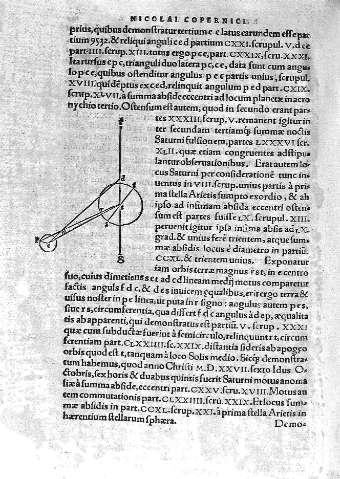 NICOLAI COPERNICI
prius, quibus demonstratur tertium e c latus earundem esse par
tium 9532. & reliqui anguli c e d partium CXXI. scrup. V. d c e
part. IIII. scrup. XIII. totus ergo p c e, part.
latus p c, trianguli duo latera p c, c e, data sunt cum angu
lo p c e, quibus ostenditur angulus p e c partis unius, scrupul.
XVIII. qui deptus ex c e d, relinquit angulum p e d part. CXIX.
scrup. XLVII. à summa abside eccentri ad locum planetæ in acro
nychio tertio. Ostensum est autem, quod in secundo erant par
tes XXXIII. scrup. V. remanent igitur in
ter secundam tertiamque summæ noctis
Saturni fulsionem, partes LXXXVI. scr.
XLII. quæ etiam congruentes adstipu
lantur observationibus. Erat autem lo
cus Saturni per considerationē tunc in
uentus in VIII. scrup. unius partis à pri
ma stella Arietis sumpto exordio, & ab
ipso ad infimam absida eccentri osten
sum est partes fuisse LX. scrupul. XIII.
peruenit igitur ipsa infima absis ad LX
grad. & unius ferè trientem, atque sum
mæ absidis locus è diametro in partiū
CCXL. & trientem unius. Exponatur
iam orbis terræ magnus r s t, in e centro
suo, cuius dimetiens s e t ad c d lineam medij motus comparetur
factis angulis f d c, & d e s inuicem æqualibus, erit ergo terra &
uisus noster in p e linea, ut puta in r signo: angulus autem p e s,
siue r s, circumferentia, qua differt f d c angulus à d e p, æqualita
tis ab apparenti, qui demonstratus est partiū. V. scrup. XXXI
quæ cum subductæ fuerint à semicirculo, relinquunt r t, circum
ferentiam part. CLXXIIII. scr. XXIX. distantia sideris ab apogeo
orbis quod est t, tanquam à loco Solis medio. Sicque demonstra
tum habemus, quod anno Christi M. D. XXVII. sexto Idus. O
ctobris, sex horis & duabus quintis fuerit Saturni motus anoma
liæ à summa abside, eccentri part. CXXV. scru. XVIII. Motus au
tem commutationis part. CLXXIIII. scrū. XXIX. Et locus sum
mæ absidis in part. CCXL. scrup. XXI. à prima stella Arietis in
hærentium stellarum sphæra.
Demo-